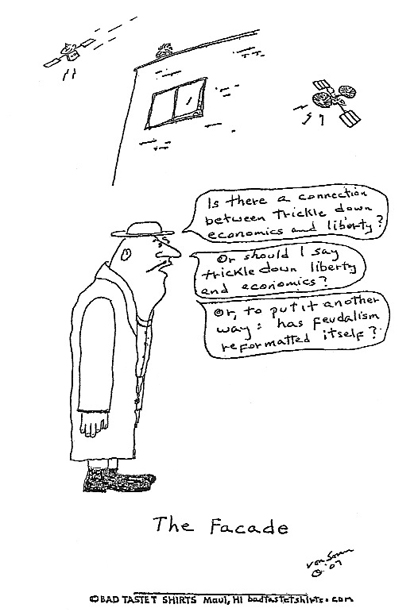 Is there a connection
between trickle down
economics and liberty?
Or should I say
trickle down liberty
and economics?
Or, to put it another
way: has feudalism
reformatted itself?
The Facade
'07
© BAD TASTE T SHIRTS Maui, HI badtastetshirts.com